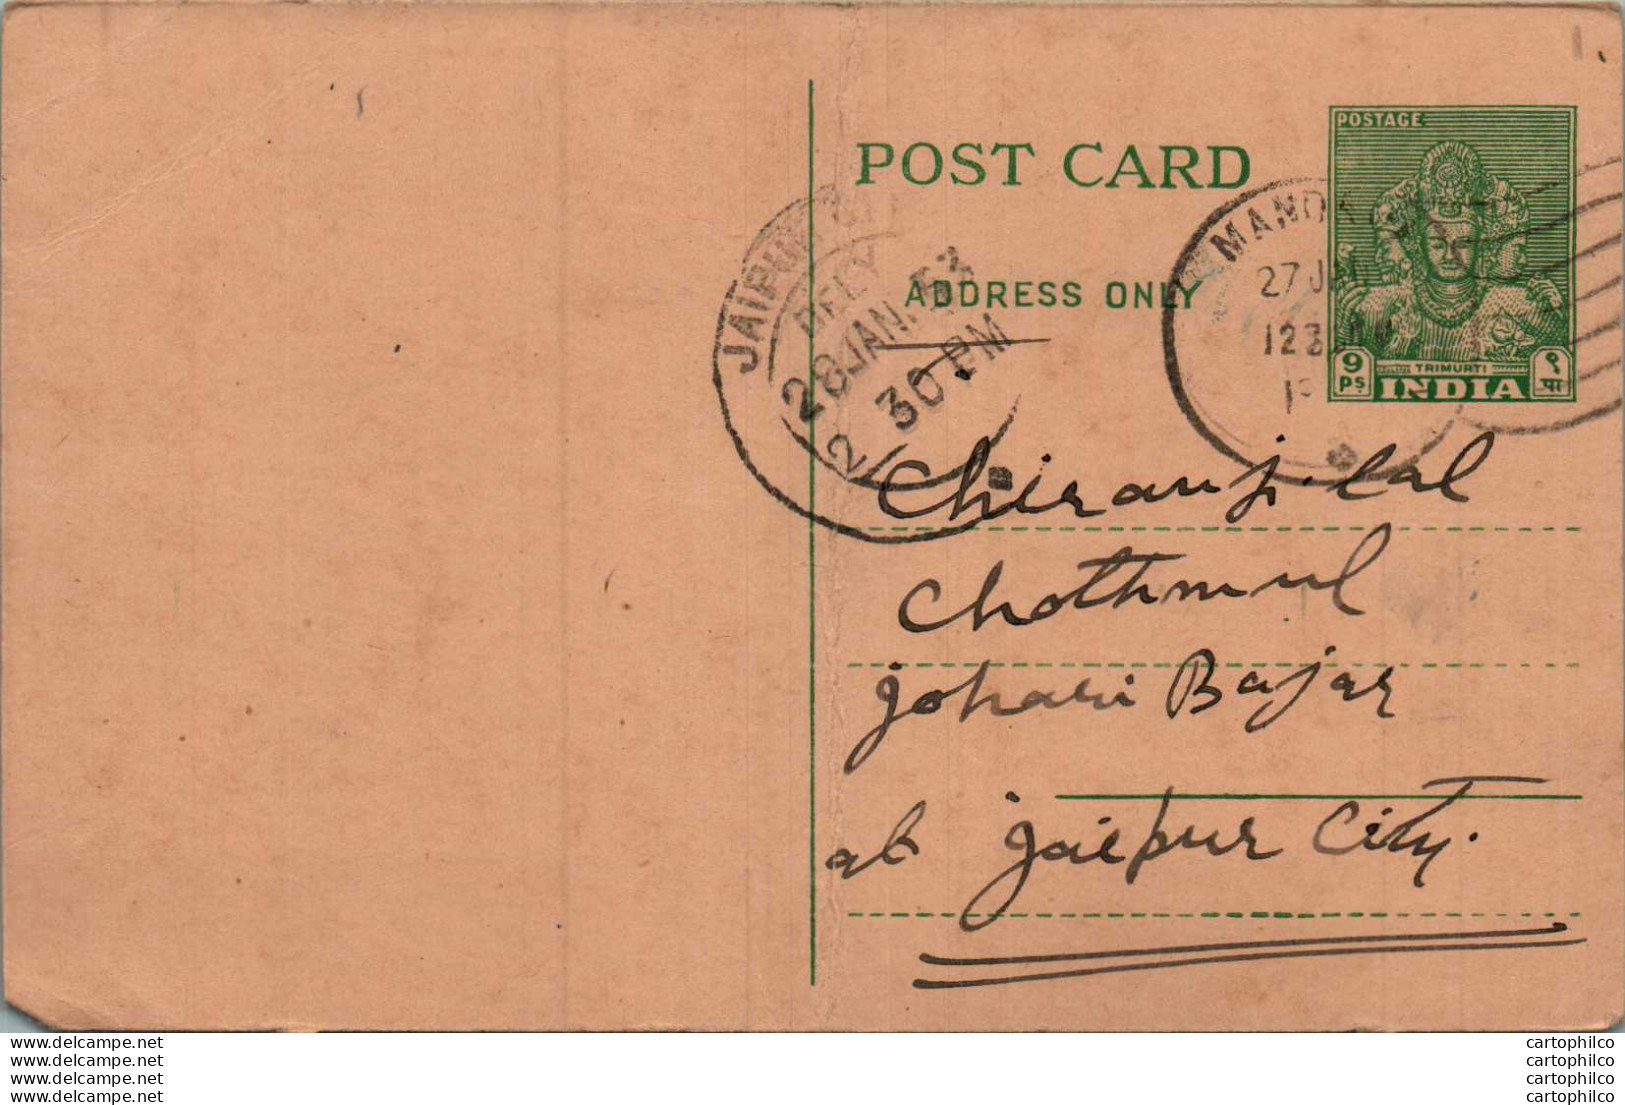 POSTAGE
POST CARD
ADDRESS ONLY
9 PS
TRIMURTI
INDIA
९ पा
JAIPUR
DELY
28 JAN. 53
2 30 PM
27 JAN
Chiranji lal
Chothmul
Johari Bajar
at Jaipur City.
www.delcampe.net
www.delcampe.net
www.delcampe.net
www.delcampe.net
cartophilco
cartophilco
cartophilco
cartophilco